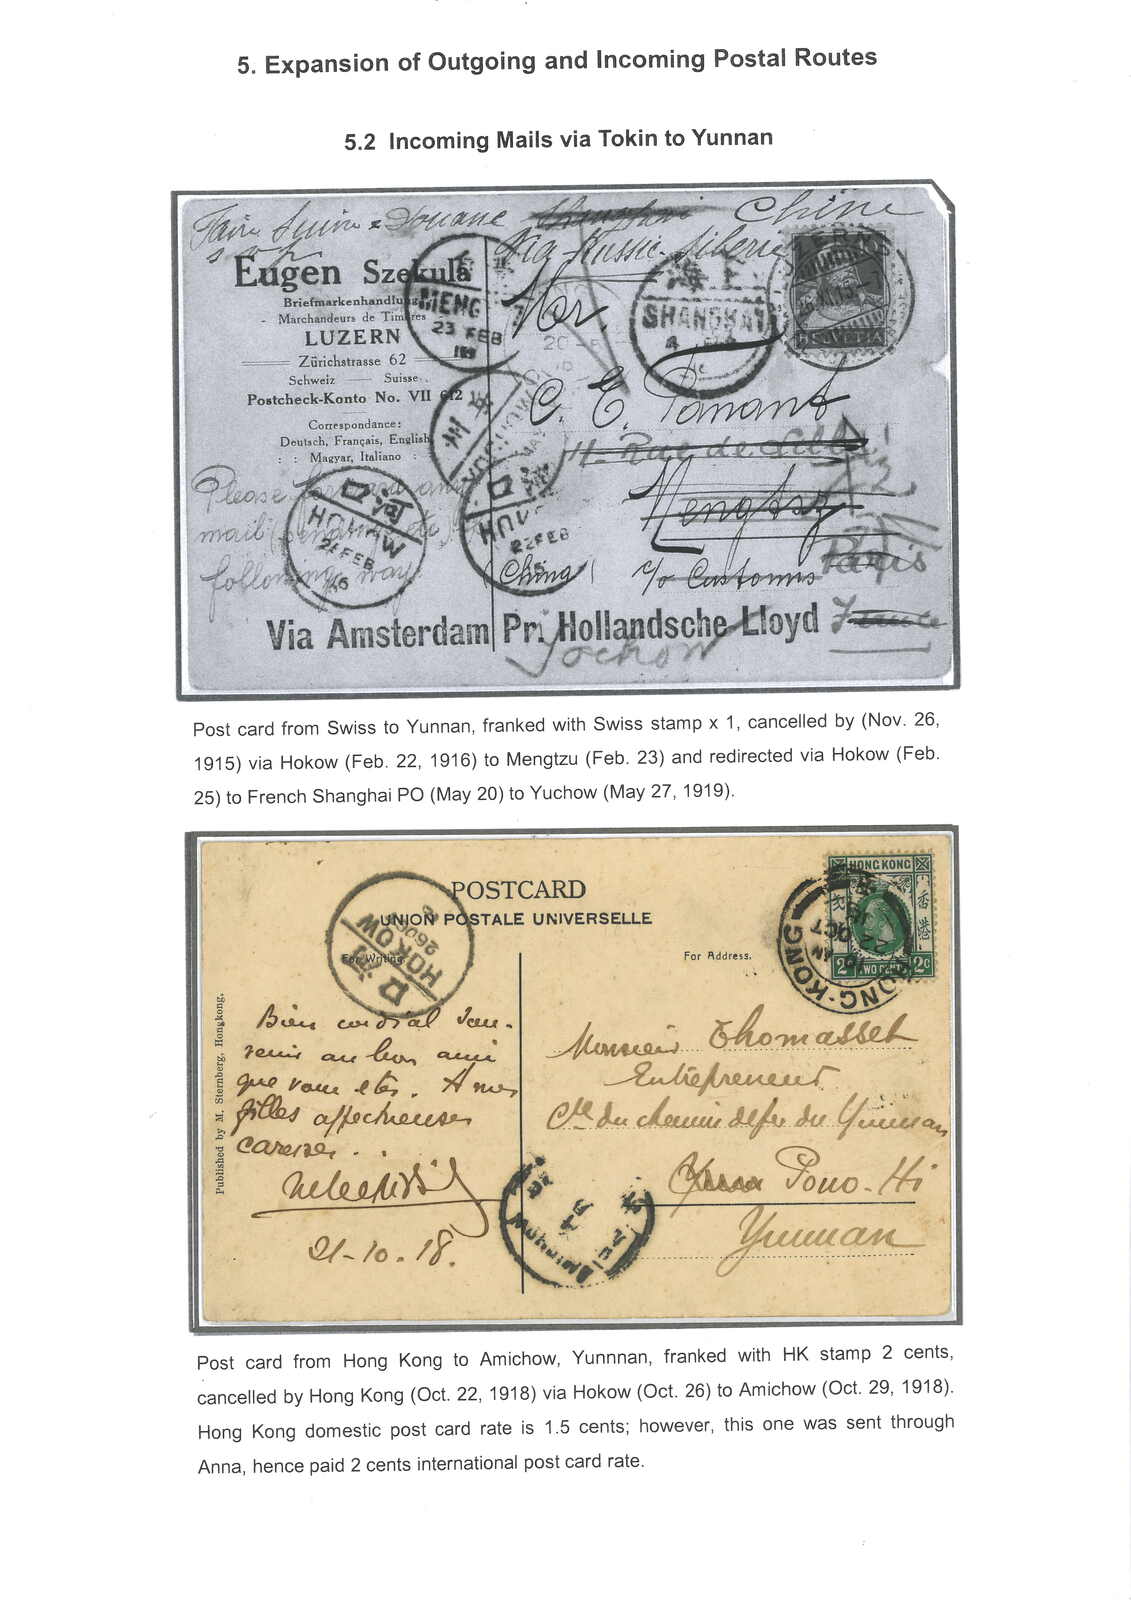 5. Expansion of Outgoing and Incoming Postal Routes
5.2 Incoming Mails via Tokin to Yunnan
Faire Suivre Douane
Chine
Via Russie-Siberie
Eugen Szekula
Briefmarkenhandlung
Marchandeurs de Timbres
LUZERN
Zürichstrasse 62
Schweiz Suisse
Postcheck-Konto No. VII 612
Correspondance:
Deutsch, Français, English
Magyar, Italiano
MENG
23 FEB
SHANGHAI
HELVETIA
Mr.
C. E. Tanant
11 Rue de
Mengtsz
(China) c/o Customs
Paris
France
Please forward any
mail
following way
HOKOW
HOKOW
22 FEB
Via Amsterdam Pr. Hollandsche Lloyd
Yochow
Post card from Swiss to Yunnan, franked with Swiss stamp x 1, cancelled by (Nov. 26,
1915) via Hokow (Feb. 22, 1916) to Mengtzu (Feb. 23) and redirected via Hokow (Feb.
25) to French Shanghai PO (May 20) to Yuchow (May 27, 1919).
POSTCARD
UNION POSTALE UNIVERSELLE
For Writing.
For Address.
HOKOW
河口
HONG KONG
香港
2c TWO CENTS 2c
HONG-KONG
22 OCT
18
Published by M. Sternberg, Hongkong.
Bien cordial Sou-
venir au bon ami
que vous etes. A mes
filles affectueuses
caresses..
21-10-18.
Monsieur Thomasset
Entrepreneur
Cie du chemin de fer du Yunnan
Pono-Hi
Yunnan
Post card from Hong Kong to Amichow, Yunnnan, franked with HK stamp 2 cents,
cancelled by Hong Kong (Oct. 22, 1918) via Hokow (Oct. 26) to Amichow (Oct. 29, 1918).
Hong Kong domestic post card rate is 1.5 cents; however, this one was sent through
Anna, hence paid 2 cents international post card rate.